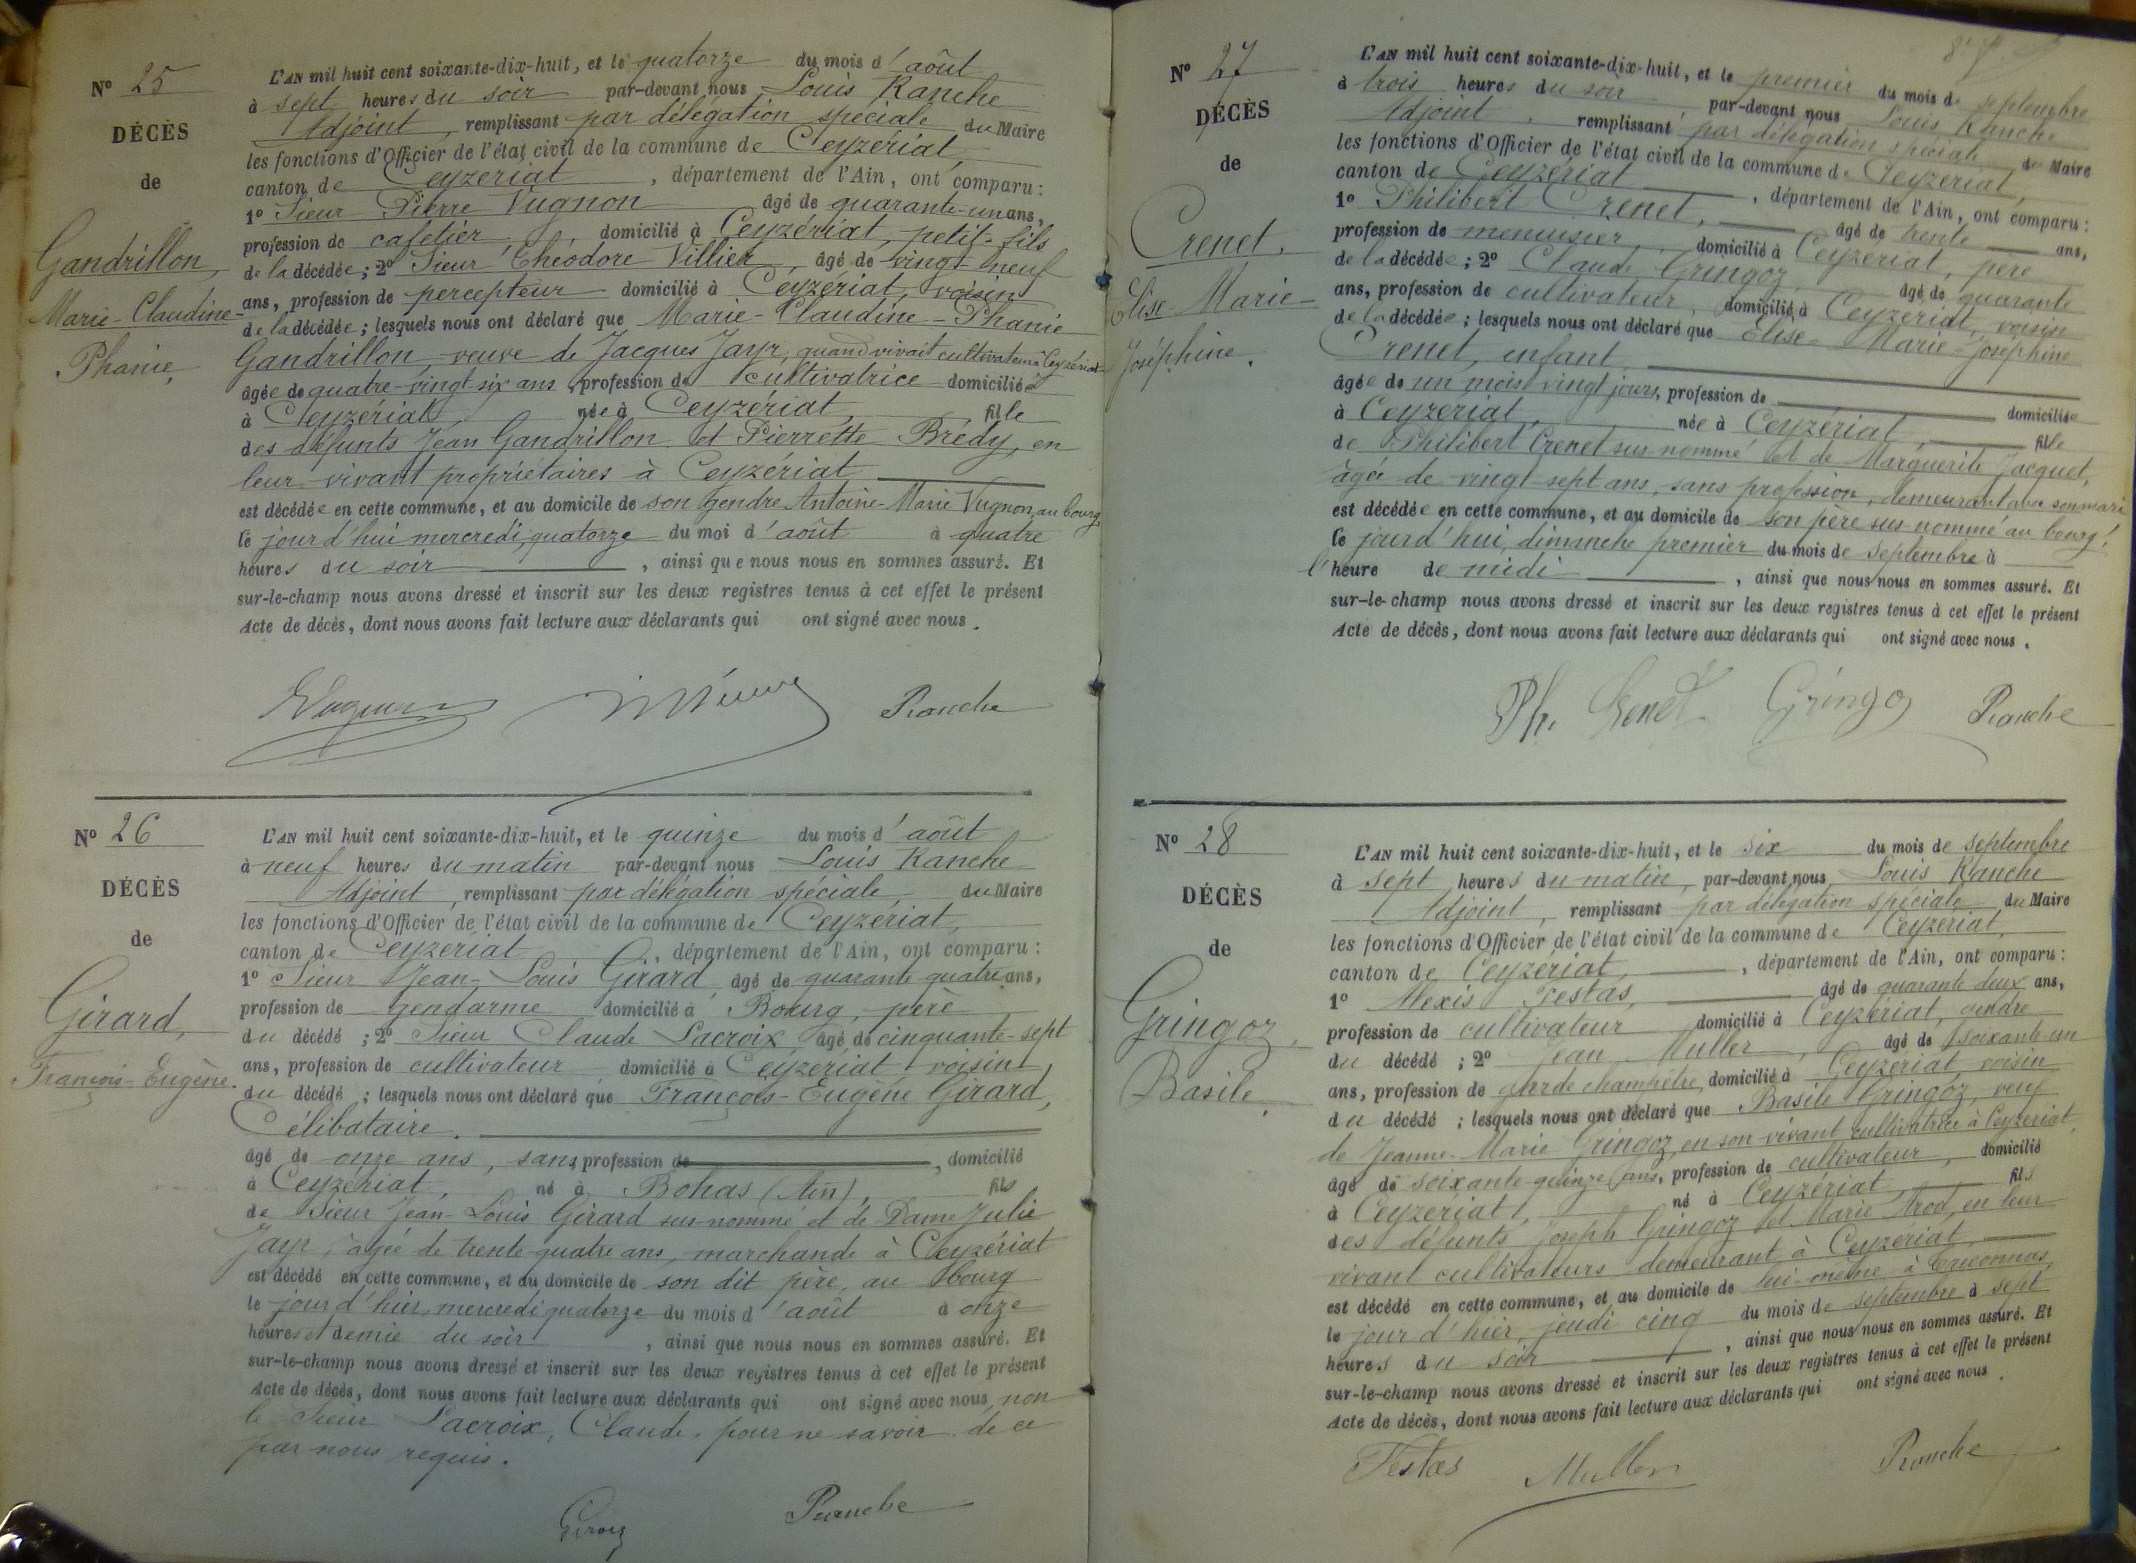 Nº 25
DÉCÈS
de
Gandrillon,
Marie-Claudine-
Phanie,
L'AN mil huit cent soixante-dix-huit, et le quatorze du mois d'août
à sept heures du soir par-devant nous Louis Ranche
Adjoint, remplissant par délégation spéciale du Maire
les fonctions d'Officier de l'état civil de la commune de Ceyzériat,
canton de Ceyzériat, département de l'Ain, ont comparu:
1º Sieur Pierre Vugnon âgé de quarante-un ans,
profession de cafetier, domicilié à Ceyzériat, petit-fils
de la décédée; 2º Sieur Théodore Villier, âgé de vingt neuf
ans, profession de percepteur domicilié à Ceyzériat, voisin
de la décédée; lesquels nous ont déclaré que Marie-Claudine-Phanie
Gandrillon, veuve de Jacques Jayr, quand vivait cultivateur à Ceyzériat
âgée de quatre-vingt six ans, profession de cultivatrice domiciliée
à Ceyzériat née à Ceyzériat, fille
des défunts Jean Gandrillon et Pierrette Brédy, en
leur vivant propriétaires à Ceyzériat
est décédée en cette commune, et au domicile de son gendre Antoine-Marie Vugnon, au bourg,
le jourd'hui mercredi quatorze du moi d'août à quatre
heures du soir, ainsi que nous nous en sommes assuré. Et
sur-le-champ nous avons dressé et inscrit sur les deux registres tenus à cet effet le présent
Acte de décès, dont nous avons fait lecture aux déclarants qui ont signé avec nous.
Ranche
Nº 26
DÉCÈS
de
Girard,
François-Eugène.
L'AN mil huit cent soixante-dix-huit, et le quinze du mois d'août
à neuf heures du matin par-devant nous Louis Ranche
Adjoint, remplissant par délégation spéciale, du Maire
les fonctions d'Officier de l'état civil de la commune de Ceyzériat,
canton de Ceyzériat, département de l'Ain, ont comparu:
1º Sieur Jean-Louis Girard, âgé de quarante quatre ans,
profession de gendarme domicilié à Bourg, père
du décédé; 2º Sieur Claude Lacroix, âgé de cinquante-sept
ans, profession de cultivateur domicilié à Ceyzériat voisin
du décédé; lesquels nous ont déclaré que François-Eugène Girard,
Célibataire.
âgé de onze ans, sans profession de, domicilié
à Ceyzériat, né à Bohas (Ain), fils
de Sieur Jean-Louis Girard sus-nommé et de Dame Julie
Jayr, âgée de trente quatre ans, marchande à Ceyzériat
est décédé en cette commune, et au domicile de son dit père, au bourg
le jour d'hier, mercredi quatorze du mois d'août à onze
heures et demie du soir, ainsi que nous nous en sommes assuré. Et
sur-le-champ nous avons dressé et inscrit sur les deux registres tenus à cet effet le présent
Acte de décès, dont nous avons fait lecture aux déclarants qui ont signé avec nous, non
le Sieur Lacroix, Claude, pour ne savoir de ce
par nous requis.
Girard Ranche
Nº 27
DÉCÈS
de
Crenet,
Elise-Marie-
Joséphine.
L'AN mil huit cent soixante-dix-huit, et le premier du mois de septembre
à trois heures du soir par-devant nous Louis Ranche
Adjoint, remplissant par délégation spéciale du Maire
les fonctions d'Officier de l'état civil de la commune de Ceyzériat,
canton de Ceyzériat, département de l'Ain, ont comparu:
1º Philibert Crenet, âgé de trente ans,
profession de menuisier, domicilié à Ceyzériat, père
de la décédée; 2º Claude Gringoz, âgé de quarante
ans, profession de cultivateur, domicilié à Ceyzériat, voisin
de la décédée; lesquels nous ont déclaré que Elise-Marie-Joséphine
Crenet, enfant
âgée de un mois vingt jours, profession de domiciliée
à Ceyzériat, née à Ceyzériat, fille
de Philibert Crenet sus-nommé et de Marguerite Jacquet,
âgée de vingt-sept ans, sans profession, demeurant avec son mari
est décédée en cette commune, et au domicile de son père sus-nommé au bourg,
le jourd'hui, dimanche premier du mois de septembre à
l'heure de midi, ainsi que nous nous en sommes assuré. Et
sur-le-champ nous avons dressé et inscrit sur les deux registres tenus à cet effet le présent
Acte de décès, dont nous avons fait lecture aux déclarants qui ont signé avec nous.
Ph. Crenet Gringoz Ranche
Nº 28
DÉCÈS
de
Gringoz,
Basile.
L'AN mil huit cent soixante-dix-huit, et le six du mois de septembre
à sept heures du matin, par-devant nous Louis Ranche
Adjoint, remplissant par délégation spéciale du Maire
les fonctions d'Officier de l'état civil de la commune de Ceyzériat,
canton de Ceyzériat, département de l'Ain, ont comparu:
1º Alexis Festas, âgé de quarante deux ans,
profession de cultivateur domicilié à Ceyzériat, gendre
du décédé; 2º Jean Muller, âgé de soixante-un
ans, profession de garde champêtre, domicilié à Ceyzériat, voisin
du décédé; lesquels nous ont déclaré que Basile Gringoz, veuf
de Jeanne-Marie Gringoz, en son vivant cultivatrice à Ceyzériat,
âgé de soixante-quinze ans, profession de cultivateur, domicilié
à Ceyzériat, né à Ceyzériat fils
des défunts Joseph Gringoz et Marie Arod, en leur
vivant cultivateurs demeurant à Ceyzériat,
est décédé en cette commune, et au domicile de lui-même à
le jour d'hier, jeudi cinq du mois de septembre à sept
heures du soir, ainsi que nous nous en sommes assuré. Et
sur-le-champ nous avons dressé et inscrit sur les deux registres tenus à cet effet le présent
Acte de décès, dont nous avons fait lecture aux déclarants qui ont signé avec nous.
Festas Muller Ranche